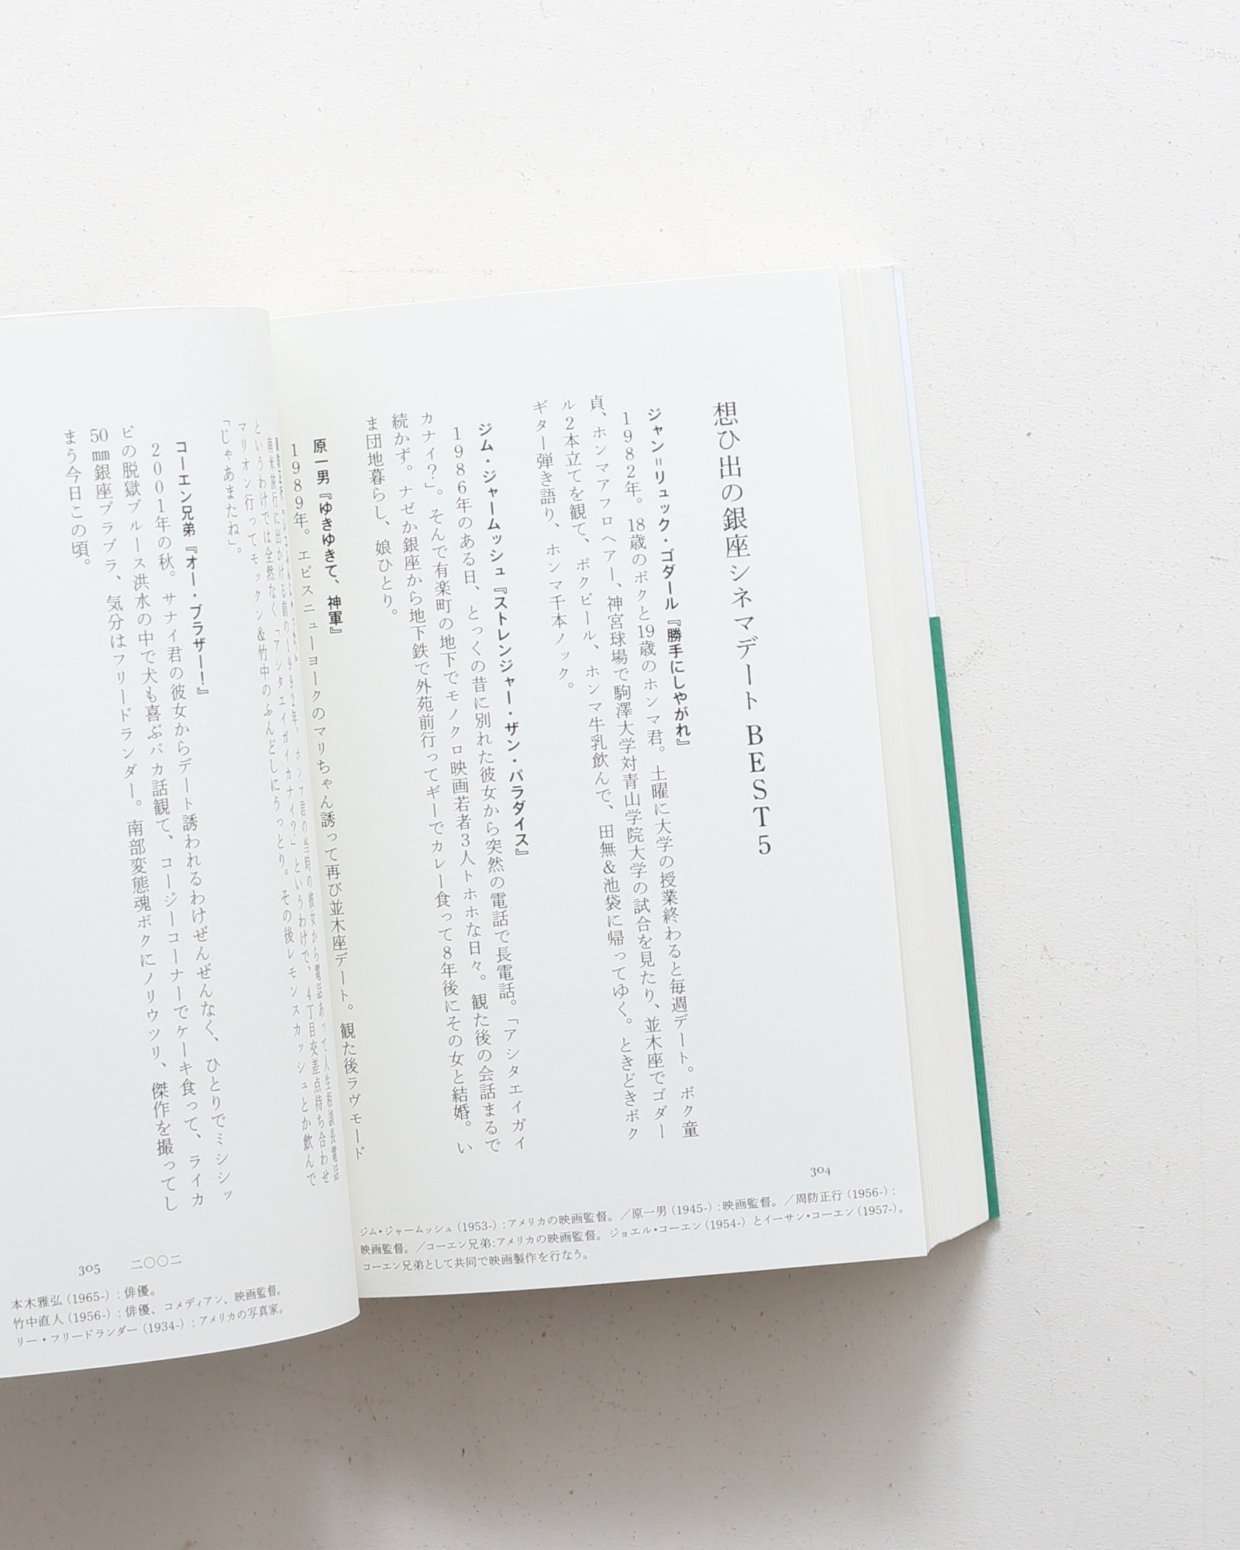 想ひ出の銀座シネマデート BEST5
ジャン=リュック・ゴダール『勝手にしやがれ』
1982年。18歳のボクと19歳のホンマ君。土曜に大学の授業終わると毎週デート。ボク童
貞、ホンマアフロヘアー、神宮球場で駒澤大学対青山学院大学の試合を見たり、並木座でゴダー
ル2本立てを観て、ボクビール、ホンマ牛乳飲んで、田無&池袋に帰ってゆく。ときどきボク
ギター弾き語り、ホンマ千本ノック。
ジム・ジャームッシュ『ストレンジャー・ザン・パラダイス』
1986年のある日、とっくの昔に別れた彼女から突然の電話で長電話。「アシタエイガイ
カナイ?」。そんで有楽町の地下でモノクロ映画若者3人トホホな日々。観た後の会話まるで
続かず。ナゼか銀座から地下鉄で外苑前行ってギーでカレー食って8年後にその女と結婚。い
ま団地暮らし、娘ひとり。
原一男『ゆきゆきて、神軍』
1989年。エビスニューヨークのマリちゃん誘って再び並木座デート。観た後ラヴモード
南米旅行に出かける前の1992年、ホンマ君の当時の彼女から電話あって人生相談長電話
というわけでは全然なく「アシタエイガイカナイ?」というわけで、4丁目交差点待ち合わせ
マリオン行ってモックン&竹中のふんどしにうっとり。その後レモンスカッシュとか飲んで
「じゃあまたね」。
コーエン兄弟『オー・ブラザー!』
2001年の秋。サナイ君の彼女からデート誘われるわけぜんぜんなく、ひとりでミシシッ
ピの脱獄ブルース洪水の中で犬も喜ぶバカ話観て、コージーコーナーでケーキ食って、ライカ
50㎜銀座ブラブラ、気分はフリードランダー。南部変態魂ボクにノリウツリ、傑作を撮ってし
まう今日この頃。
304
ジム・ジャームッシュ(1953-):アメリカの映画監督。/原一男(1945-):映画監督。/周防正行(1956-):
映画監督。/コーエン兄弟:アメリカの映画監督。ジョエル・コーエン(1954-)とイーサン・コーエン(1957-)。
コーエン兄弟として共同で映画製作を行なう。
305 二〇〇二
本木雅弘(1965-):俳優。
竹中直人(1956-):俳優、コメディアン、映画監督。
リー・フリードランダー(1934-):アメリカの写真家。